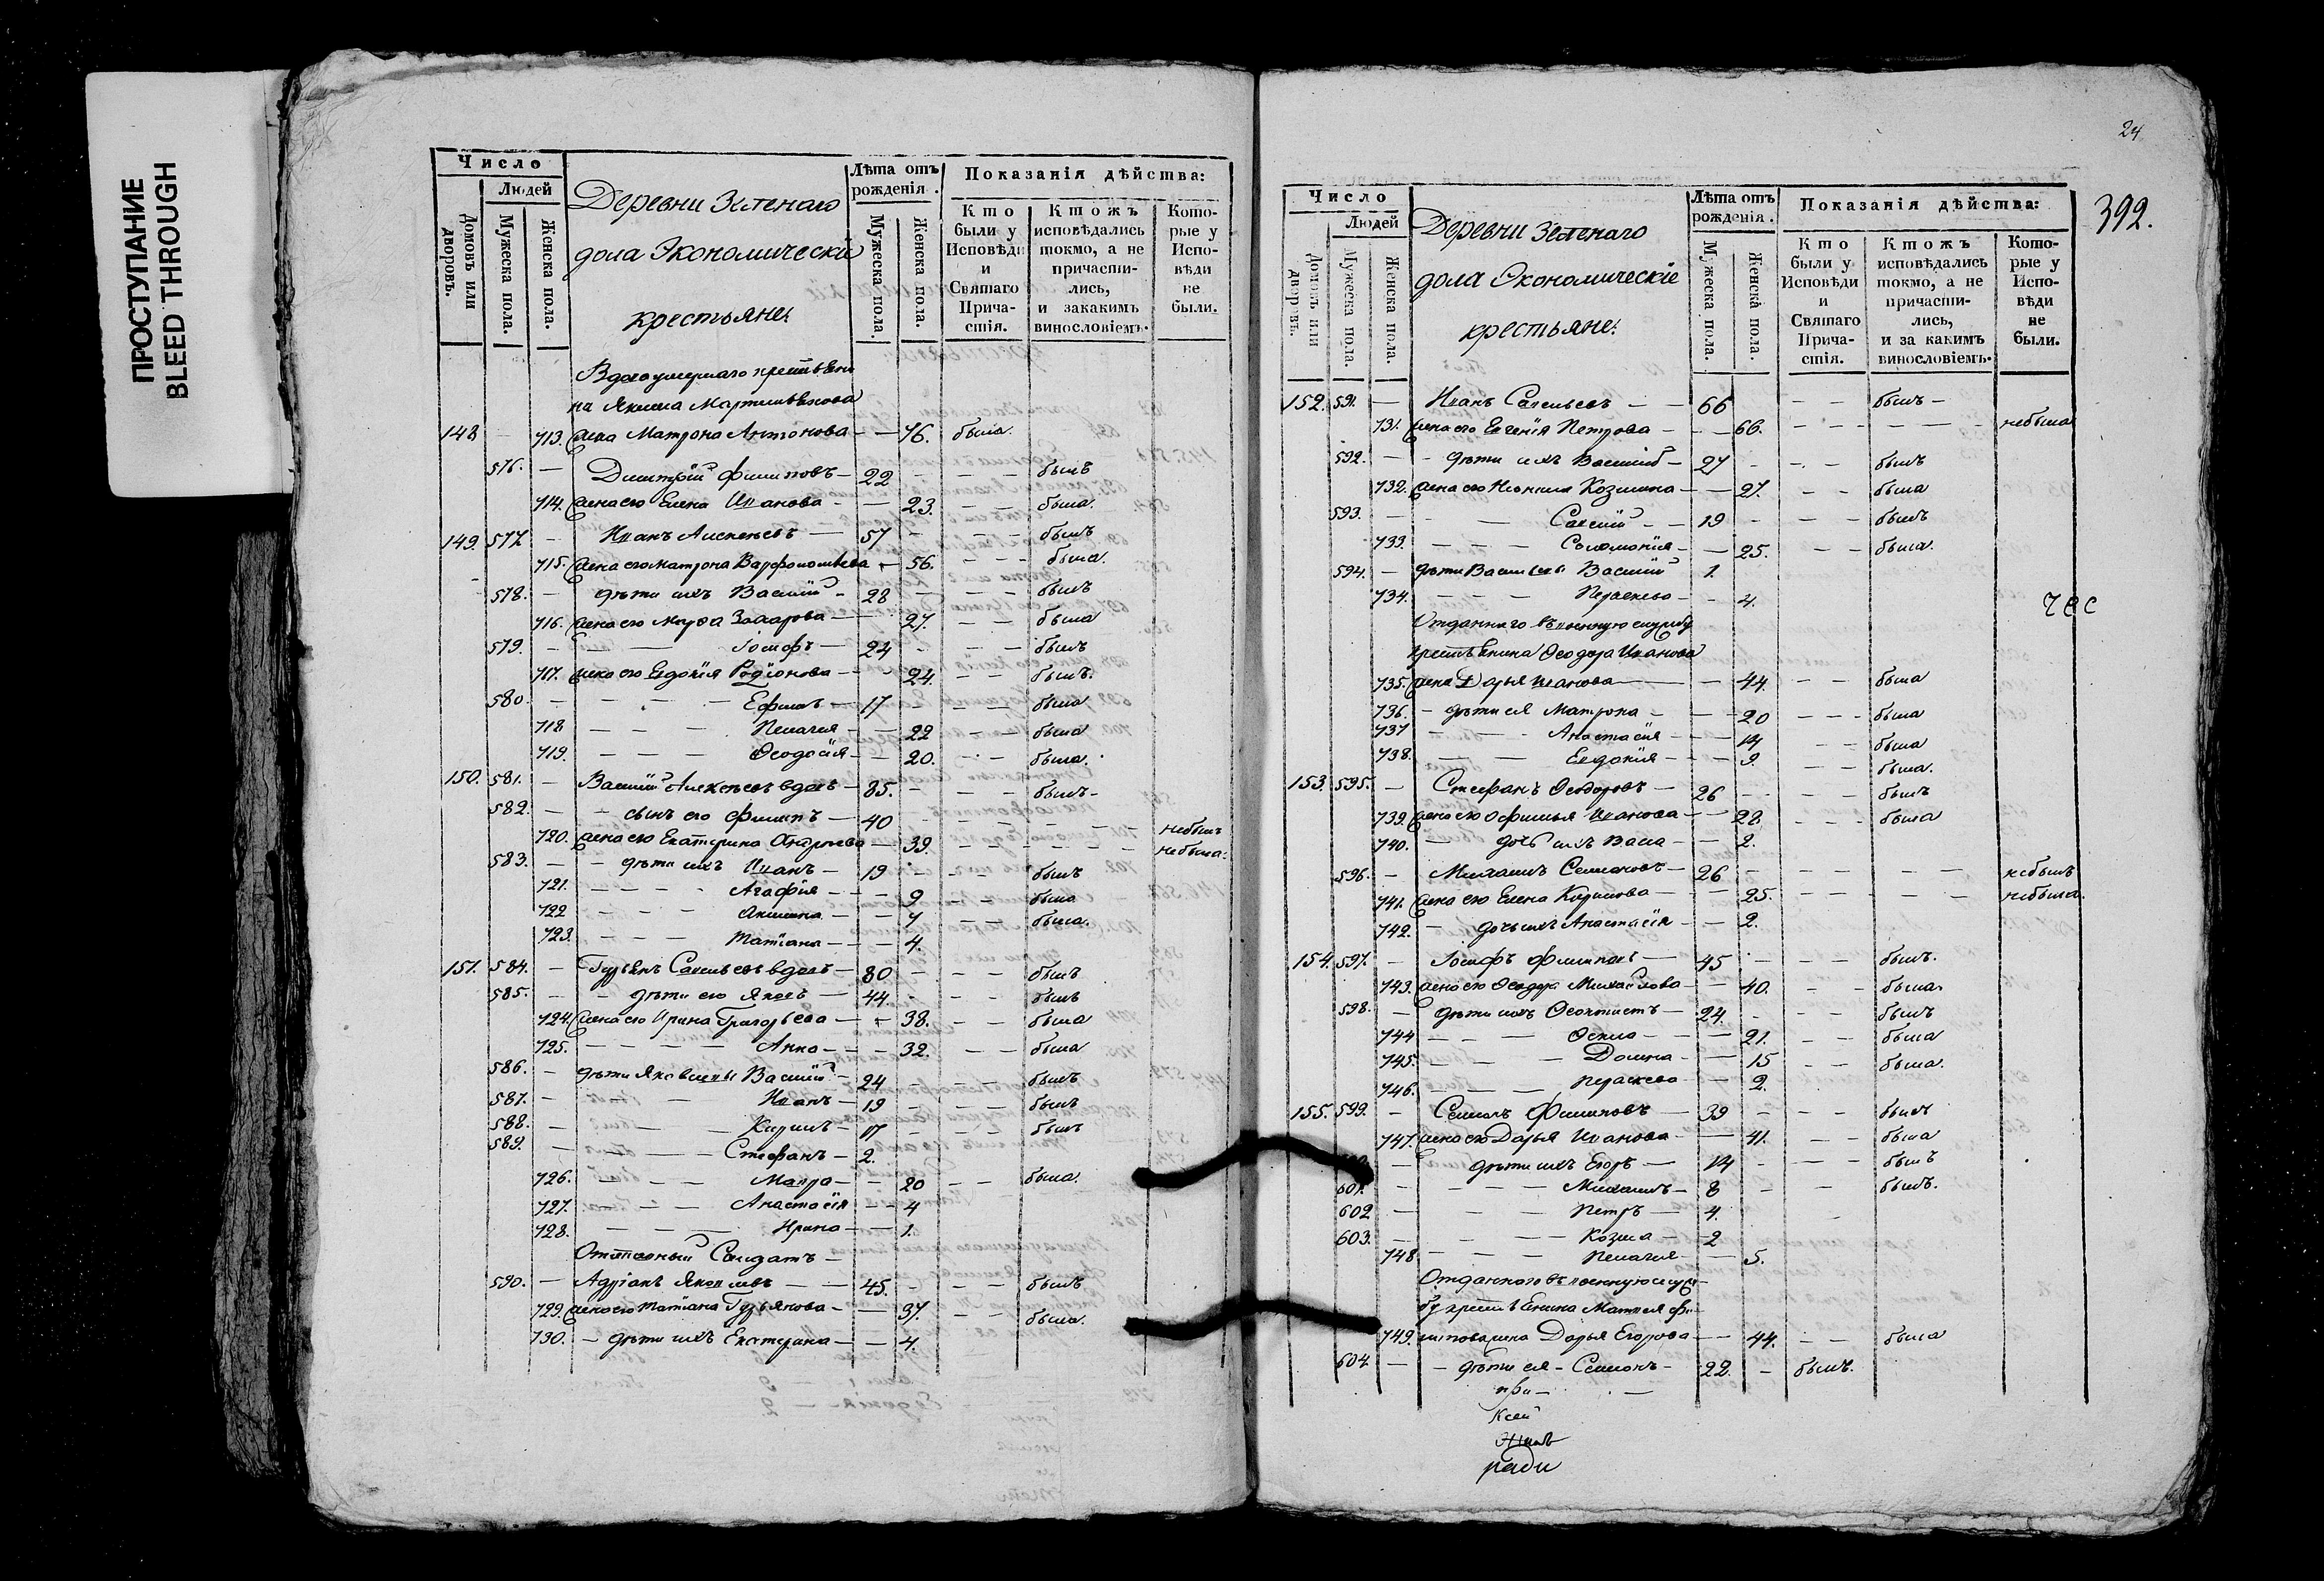 ПРОСТУПАНИЕ
BLEED THROUGH
Число
Людей
Домовъ или дворовъ.
Мужеска пола.
Женска пола.
Деревни Зеленаго
дола Экономическіе
крестьяне.
Лѣта отъ рожденія.
Мужеска пола.
Женска пола.
Показанія дѣйства:
Кто были у Исповѣди и Святаго Причастія.
Ктожъ исповѣдались токмо, а не причастились, и закакимъ винословіемъ.
Которые у Исповѣди не были.
на Якима
148 713. жена Матрона Антонова 76. была.
576. Димитрій Филиповъ 22 былъ
714. жена его Елена Иванова 23. была.
149. 577 Иванъ Алексѣевъ 57 былъ
715. жена его Матрона Варфоломѣева 56. была.
578. дѣти ихъ Василій 28 былъ
716. жена его Марѳа Захарова 27. была
579. Іосифъ 24 былъ
717. жена его Евдокія Родіонова 24. былъ.
580. Ефимъ 17 была
718 Пелагея 22 была
719. Ѳеодосія 20. была.
150. 581. Василій Алексѣевъ вдовъ 85. былъ
582. сынъ его Филипъ 40 небылъ
720. жена его Екатерина Андреева 39. небыла.
583. дѣти ихъ Иванъ 19 былъ
721. Агафія 9 была
722 Акилина 7 была.
723. Татіана 4.
151. 584. Гурьянъ Савельевъ вдовъ 80 былъ
585. дѣти его Яковъ 44. былъ
724. жена его Ирина Григорьева 38. была
725. Анна 32. была
586. дѣти Яковлевы Василій 24 былъ
587. Иванъ 19 былъ
588. Кирилъ 17 былъ
589. Стефанъ 2.
726. Мавра 20 была.
727. Анастасія 4
728. Ирина 1.
Отставный Салдатъ
590. Адріанъ Яковлевъ 45. былъ
729. жена его Татіана Гурьянова 37. была.
730. дѣти ихъ Екатерина 4.
24
392.
Число
Людей
Домовъ или дворовъ.
Мужеска пола.
Женска пола.
Деревни Зеленаго
дола Экономическіе
крестьяне.
Лѣта отъ рожденія.
Мужеска пола.
Женска пола.
Показанія дѣйства:
Кто были у Исповѣди и Святаго Причастія.
Ктожъ исповѣдались токмо, а не причастились, и за какимъ винословіемъ.
Которые у Исповѣди не были.
152. 591. Иванъ Савельевъ 66 былъ
731. жена его Евгенія Петрова 66. небыла
592. дѣти ихъ Василій 27 былъ
732. жена его Неонила Козмина 27. была
593. Савелій 19 былъ
733. Соломонія 25. была.
594. дѣти Васильевы Василій 1.
734. Параскева 4.
Отданнаго въ военную службу
крестьянина Ѳеодора Иванова
735. жена Дарья Иванова 44. была
736. дѣти ея Матрона 20 была
737 Анастасія 14 была
738. Евдокія 9. была.
153. 595. Стефанъ Ѳеодоровъ 26 былъ
739. жена его Офимья Иванова 28. была
740. дочь ихъ Васса 2.
596. Михаилъ Семеновъ 26 небылъ
741. жена его Елена Кирилова 25. небыла.
742. дочь ихъ Анастасія 2.
154. 597. Іосифъ Филиповъ 45 былъ.
743. жена его Ѳеодора Михайлова 40. была.
598. дѣти ихъ Ѳеоктистъ 24 былъ
744 21. была
745. Домна 15 была.
746. Параскева 2.
155. 599. Семенъ Филиповъ 39 былъ
747. жена его Дарья Иванова 41. была
дѣти ихъ Егоръ 14 былъ
601. Михаилъ 8 былъ.
602 Петръ 4.
603. Козма 2
748 Пелагея 5.
Отданнаго въ военную служ-
бу крестьянина Матвея Фи-
749. липова жена Дарья Егорова 44. была
604. дѣти ея Семенъ 22. былъ.
при
ксей
ради